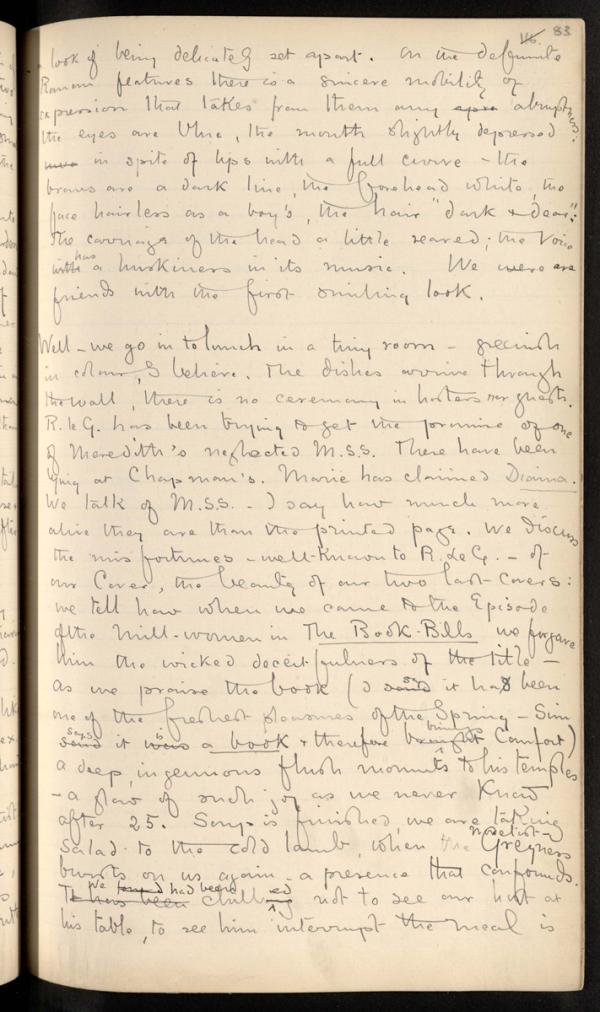 116. 83
a look of being delicately set apart. On the definite
Roman features there is a sincere mobility of
expression that takes from them any abruptness.
the eyes are blue, the mouth slightly depressed
in spite of lips with a full curve – the
brows are a dark line, the forehead white, the
face hairless as a boy's, the hair "dark & dear".
The carriage of the head a little reared; the voice
with has a huskiness in its music. We were are
friends with the first smiling look.
Well – we go in to lunch in a tiny room – greenish
in colour, I believe. The dishes arrive through
the wall, there is no ceremony in hosters nor guests.
R. le G. has been trying to get the promise of one
of Meredith's neglected M.S.S. There have been
lying at Chapman's. Marie has claimed Diana.
We talk of M.S.S. – I say how much more
alive they are than the printed page. We discuss
the misfortunes – well-known to R. le G. – of
our Cover, the beauty of our two last covers:
we tell how when we came to the Episode
of the Mill-women in The Book-Bills we forgave
him the wicked deceitfulness of the title –
As we praise the book (I said say it has been
one of the freshest pleasures of the Spring – Sim
said says it was is a book & therefore brought brings Comfort)
a deep, ingenuous flush mounts to his temples
– a flow of such joy as we never know
after 25. Soup is finished, we are taking
salad to the cold lamb, when the Greyness
bursts on us again – a presence that confounds.
T has been We found had been chilling ed not to see our host at
his table, to see him interrupt the meal is